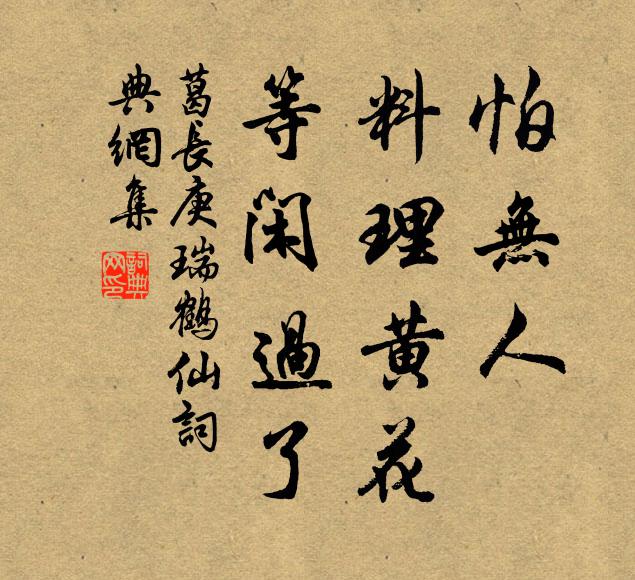 怕無人
料理黄花
等閑過了
葛長庚瑞鶴仙詞
典網集
詞典網印